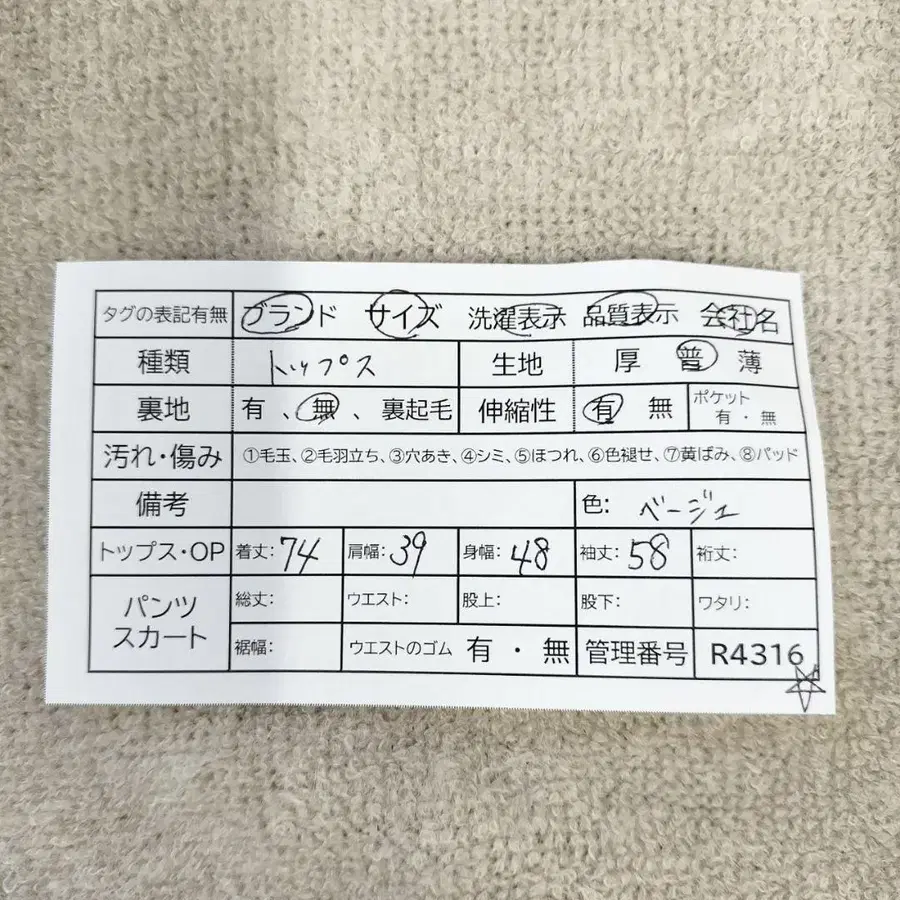 タグの表記有無 ブランド サイズ 洗濯表示 品質表示 会社名
種類 トップス 生地 厚 普 薄
裏地 有、無、裏起毛 伸縮性 有 無 ポケット 有・無
汚れ・傷み ①毛玉、②毛羽立ち、③穴あき、④シミ、⑤ほつれ、⑥色褪せ、⑦黄ばみ、⑧パッド
備考 色: ベージュ
トップス・OP 着丈:74 肩幅:39 身幅:48 袖丈:58 裄丈:
パンツ スカート 総丈: ウエスト: 股上: 股下: ワタリ:
裾幅: ウエストのゴム 有・無 管理番号 R4316